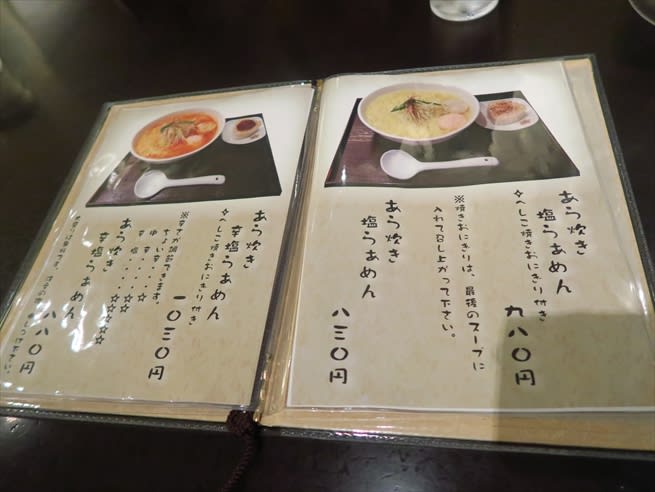 あら炊き
塩らぁめん
✧へしこ焼きおにぎり付き
九八〇円
※焼きおにぎりは、最後のスープに
入れてお召し上がって下さい。
あら炊き
塩らぁめん
八三〇円
あら炊き
辛塩らぁめん
✧へしこ焼きおにぎり付き
一〇三〇円
※辛さが調節できます。
ちょい辛・・・☆
辛・・・・☆☆☆
あら炊き
辛塩らぁめん
八八〇円